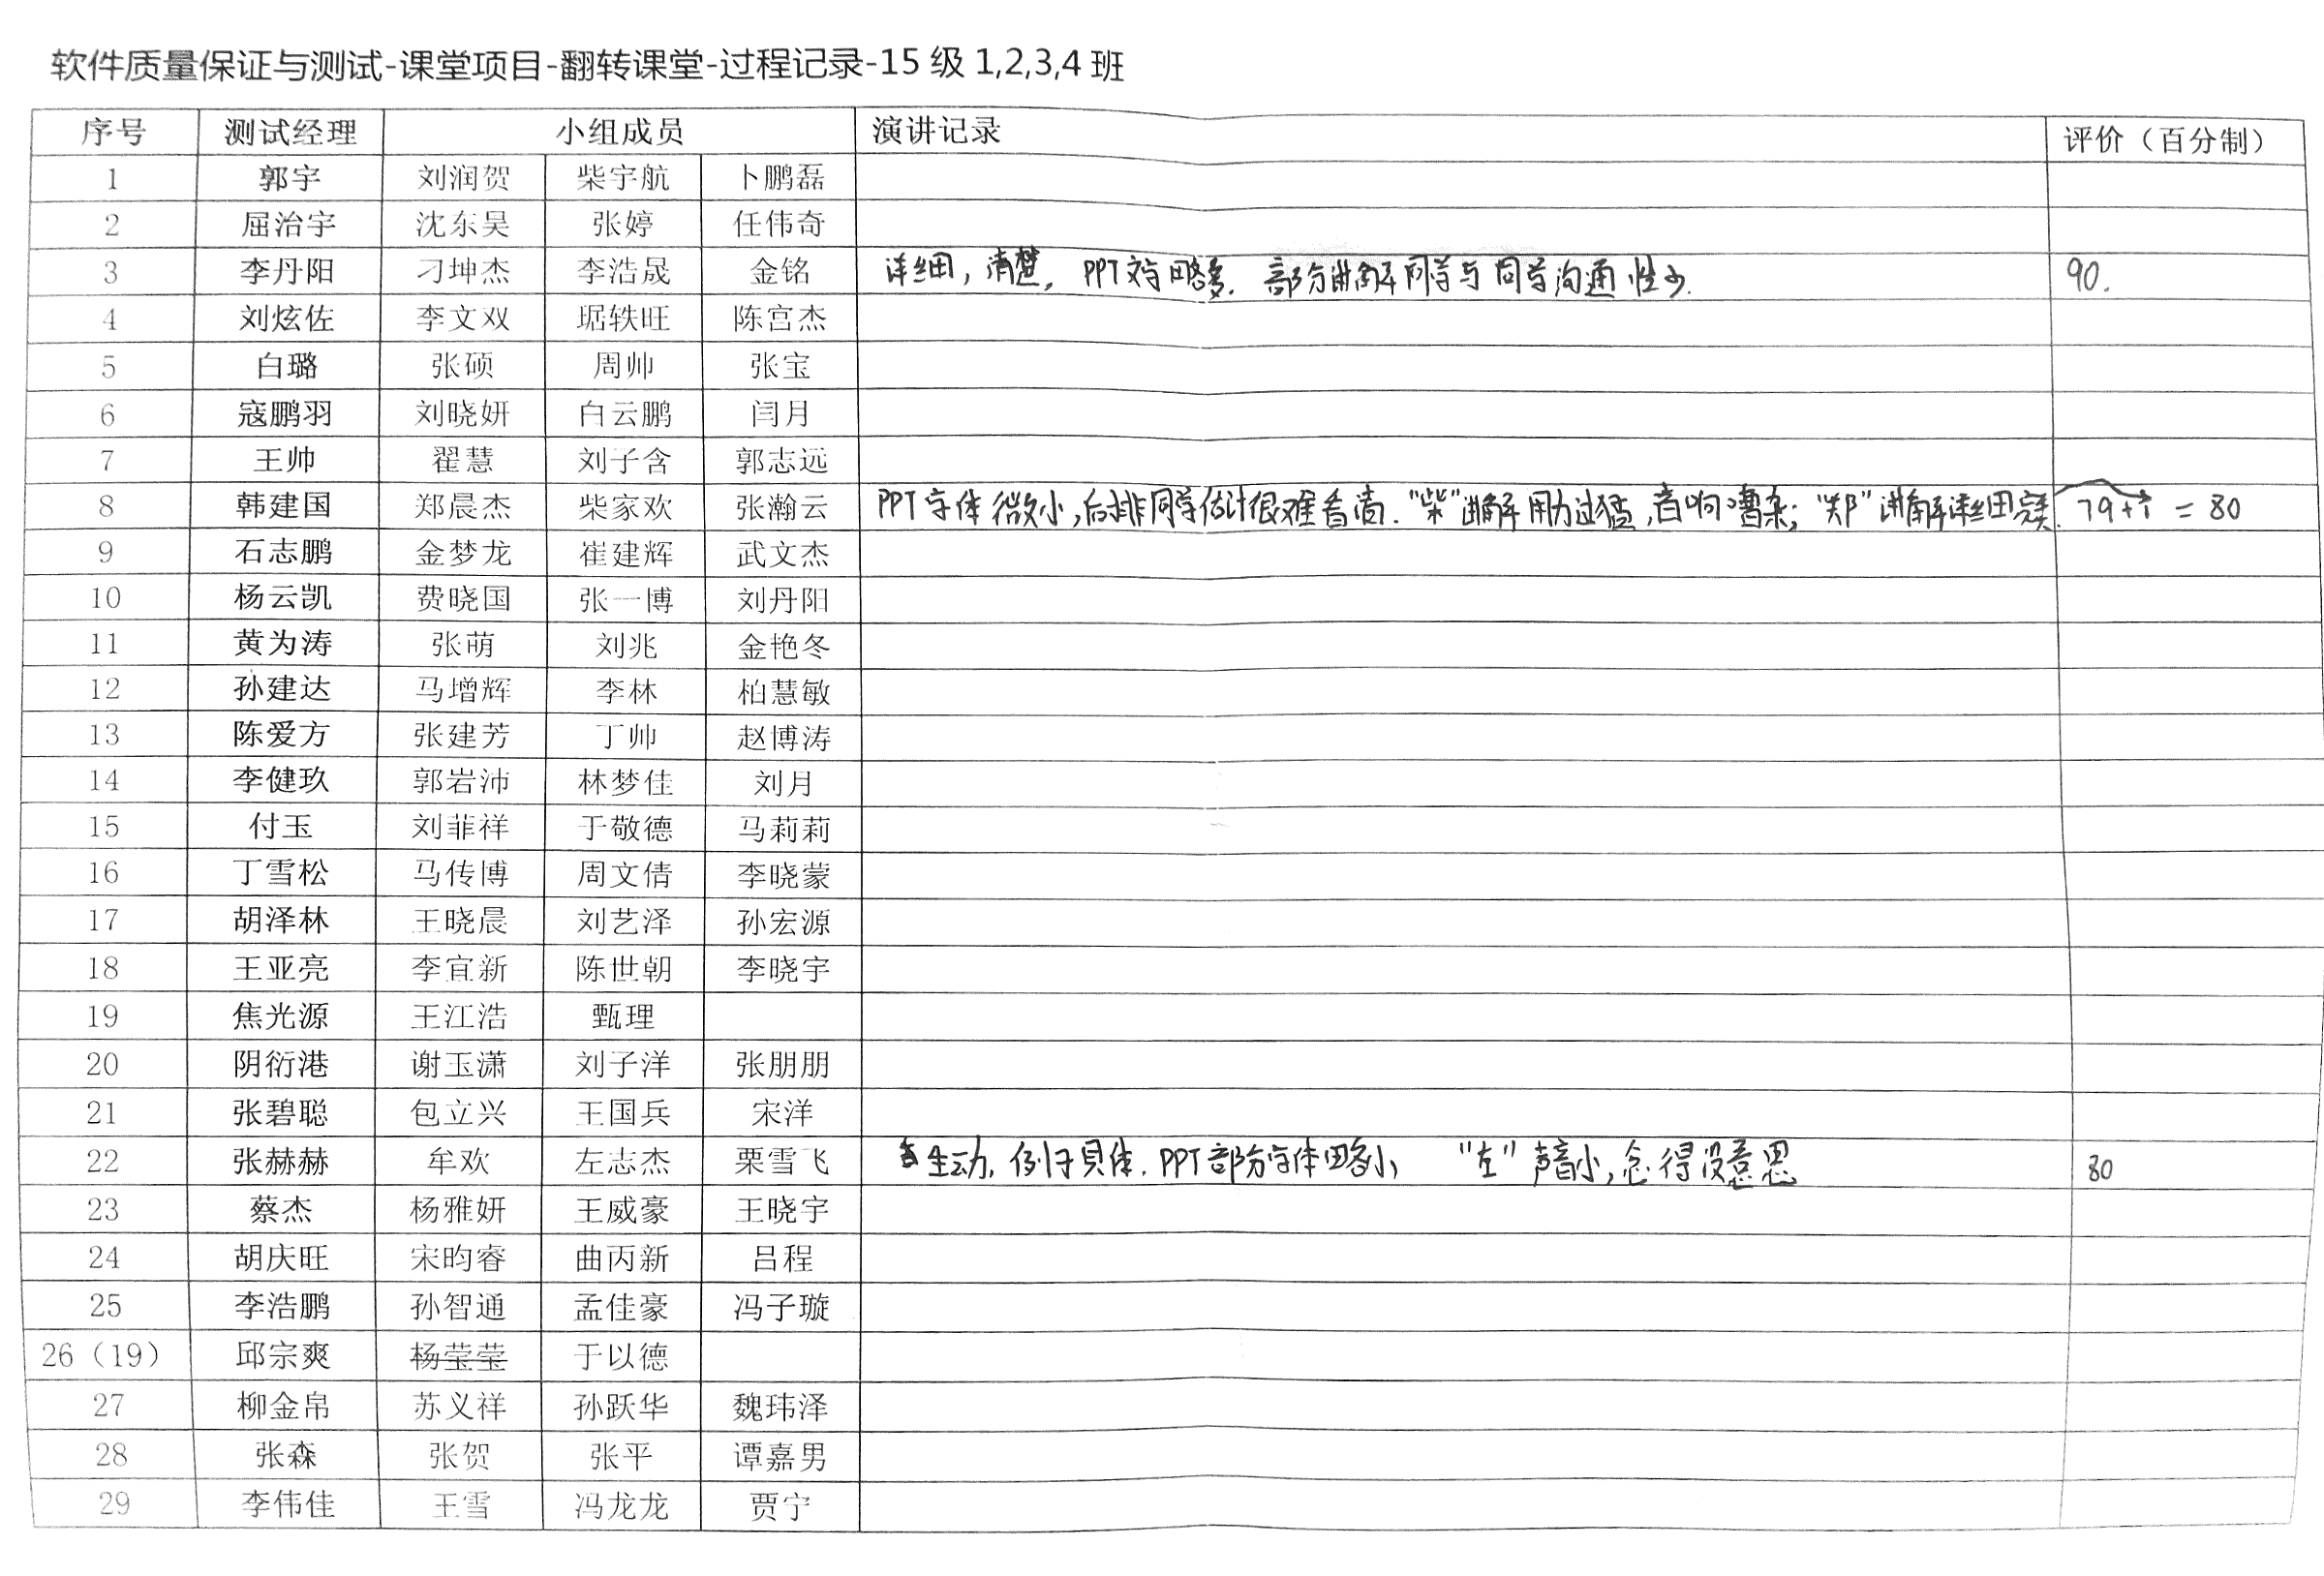 软件质量保证与测试-课堂项目-翻转课堂-过程记录-15级1,2,3,4班
序号 测试经理 小组成员 演讲记录 评价（百分制）
1 郭宇 刘润贺 柴宇航 卜鹏磊
2 屈治宇 沈东昊 张婷 任伟奇
3 李丹阳 刁坤杰 李浩晟 金铭 详细，清楚，PPT文字略多．部分讲解同学与同学沟通性少． 90.
4 刘炫佐 李文双 琚轶旺 陈宫杰
5 白璐 张硕 周帅 张宝
6 寇鹏羽 刘晓妍 白云鹏 闫月
7 王帅 翟慧 刘子含 郭志远
8 韩建国 郑晨杰 柴家欢 张瀚云 PPT字体微小，后排同学估计很难看清．“柴”讲解用力过猛，音响嘈杂；“郑”讲解详细完美． 79+1=80
9 石志鹏 金梦龙 崔建辉 武文杰
10 杨云凯 费晓国 张一博 刘丹阳
11 黄为涛 张萌 刘兆 金艳冬
12 孙建达 马增辉 李林 柏慧敏
13 陈爱方 张建芳 丁帅 赵博涛
14 李健玖 郭岩沛 林梦佳 刘月
15 付玉 刘菲祥 于敬德 马莉莉
16 丁雪松 马传博 周文倩 李晓蒙
17 胡泽林 王晓晨 刘艺泽 孙宏源
18 王亚亮 李宜新 陈世朝 李晓宇
19 焦光源 王江浩 甄理
20 阴衍港 谢玉潇 刘子洋 张朋朋
21 张碧聪 包立兴 王国兵 宋洋
22 张赫赫 牟欢 左志杰 栗雪飞 生动，例子具体．PPT部分字体略小， “左”声音小，念得没意思 80
23 蔡杰 杨雅妍 王威豪 王晓宇
24 胡庆旺 宋昀睿 曲丙新 吕程
25 李浩鹏 孙智通 孟佳豪 冯子璇
26（19） 邱宗爽 杨莹莹 于以德
27 柳金帛 苏义祥 孙跃华 魏玮泽
28 张森 张贺 张平 谭嘉男
29 李伟佳 王雪 冯龙龙 贾宁